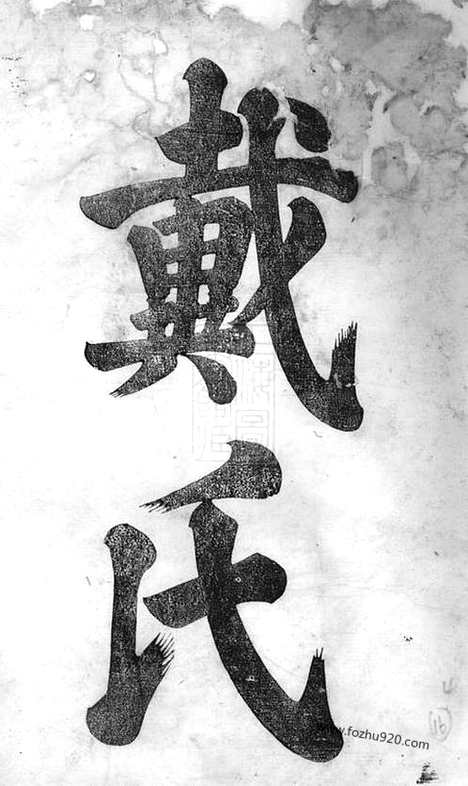 戴氏
16
www.fozhu920.com